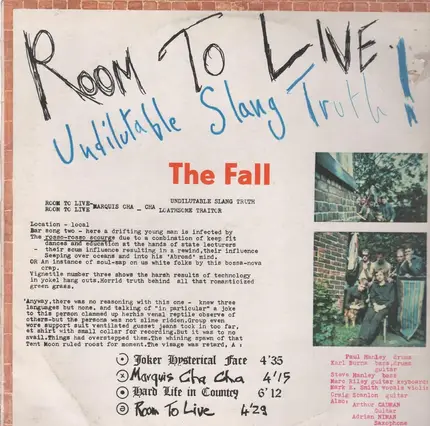 ROOM TO LIVE
Undilutable Slang Truth!
The Fall
UNDILUTABLE SLANG TRUTH
ROOM TO LIVE-MARQUIS CHA _ CHA
ROOM TO LIVE LOATHSOME TRAITOR
Location - local
Bar song two - here a drifting young man is infected by
The rosso-rosso scourge due to a combination of keep fit
dances and education at the hands of state lecturers
- their scum influence resulting in a rewind,their influence
Seeping over oceans and into his 'Abroad' mind.
OR An instance of soul-map on us white folks by this bossa-nova
crap.
Vignette number three shows the harsh results of technology
in yokel hang outs.Horrid truth behind all that romanticized
green grass.
'Anyway,there was no reasoning with this one - knew three
languages but none. and talking of "in particular" a joke
to this person clammed up her
venal reptile observe of
others-but the persona was not slime ridden.Group even
wore support suit ventilated gusset jeans tock in too far.
et shirt with small collar for recording.But it was to no
avail.Things had overstepped them.The whining spawn of that
Tent Moon ruled roost for moment.The visage was retard, A :
Joker Hysterical Face 4'35
Marquis Cha Cha 4'15
Hard Life in Country 6'12
Room To Live 4'29
Paul Hanley drums
Karl Burns bass,drums
guitar
Steve Hanley bass
Marc Riley guitar keyboards
Mark E. Smith vocals violin
Craig Scanlon guitar
Also:
Arthur CADMAN
Guitar
Adrian NIMAN
Saxophone